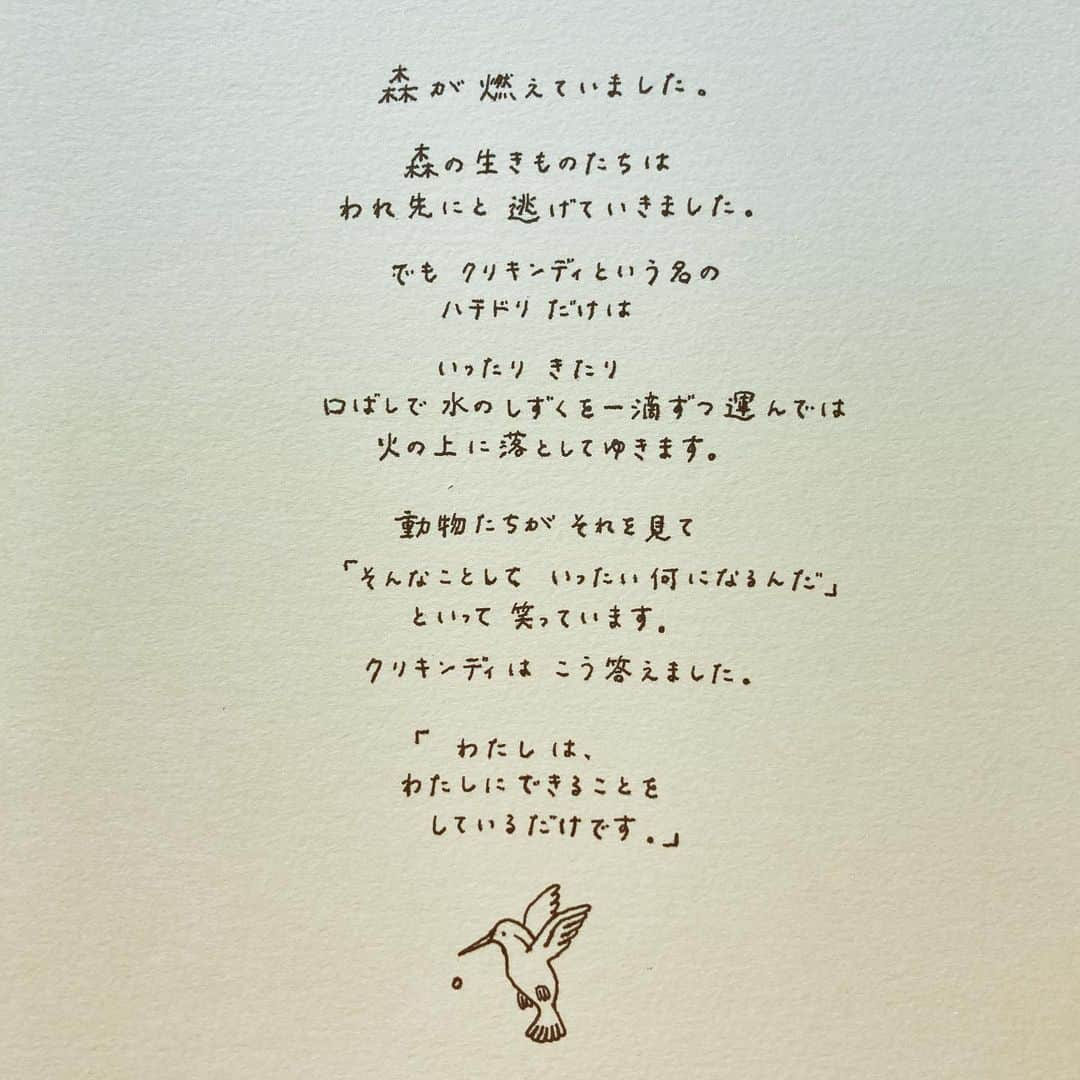 森が燃えていました。
森の生きものたちは
われ先にと 逃げていきました。
でも クリキンディという名の
ハチドリ だけは
いったり きたり
口ばしで 水のしずくを一滴ずつ 運んでは
火の上に落としてゆきます。
動物たちが それを見て
「そんなことして いったい何になるんだ」
といって 笑っています。
クリキンディは こう答えました。
「 わたし は、
わたしにできることを
しているだけです。」